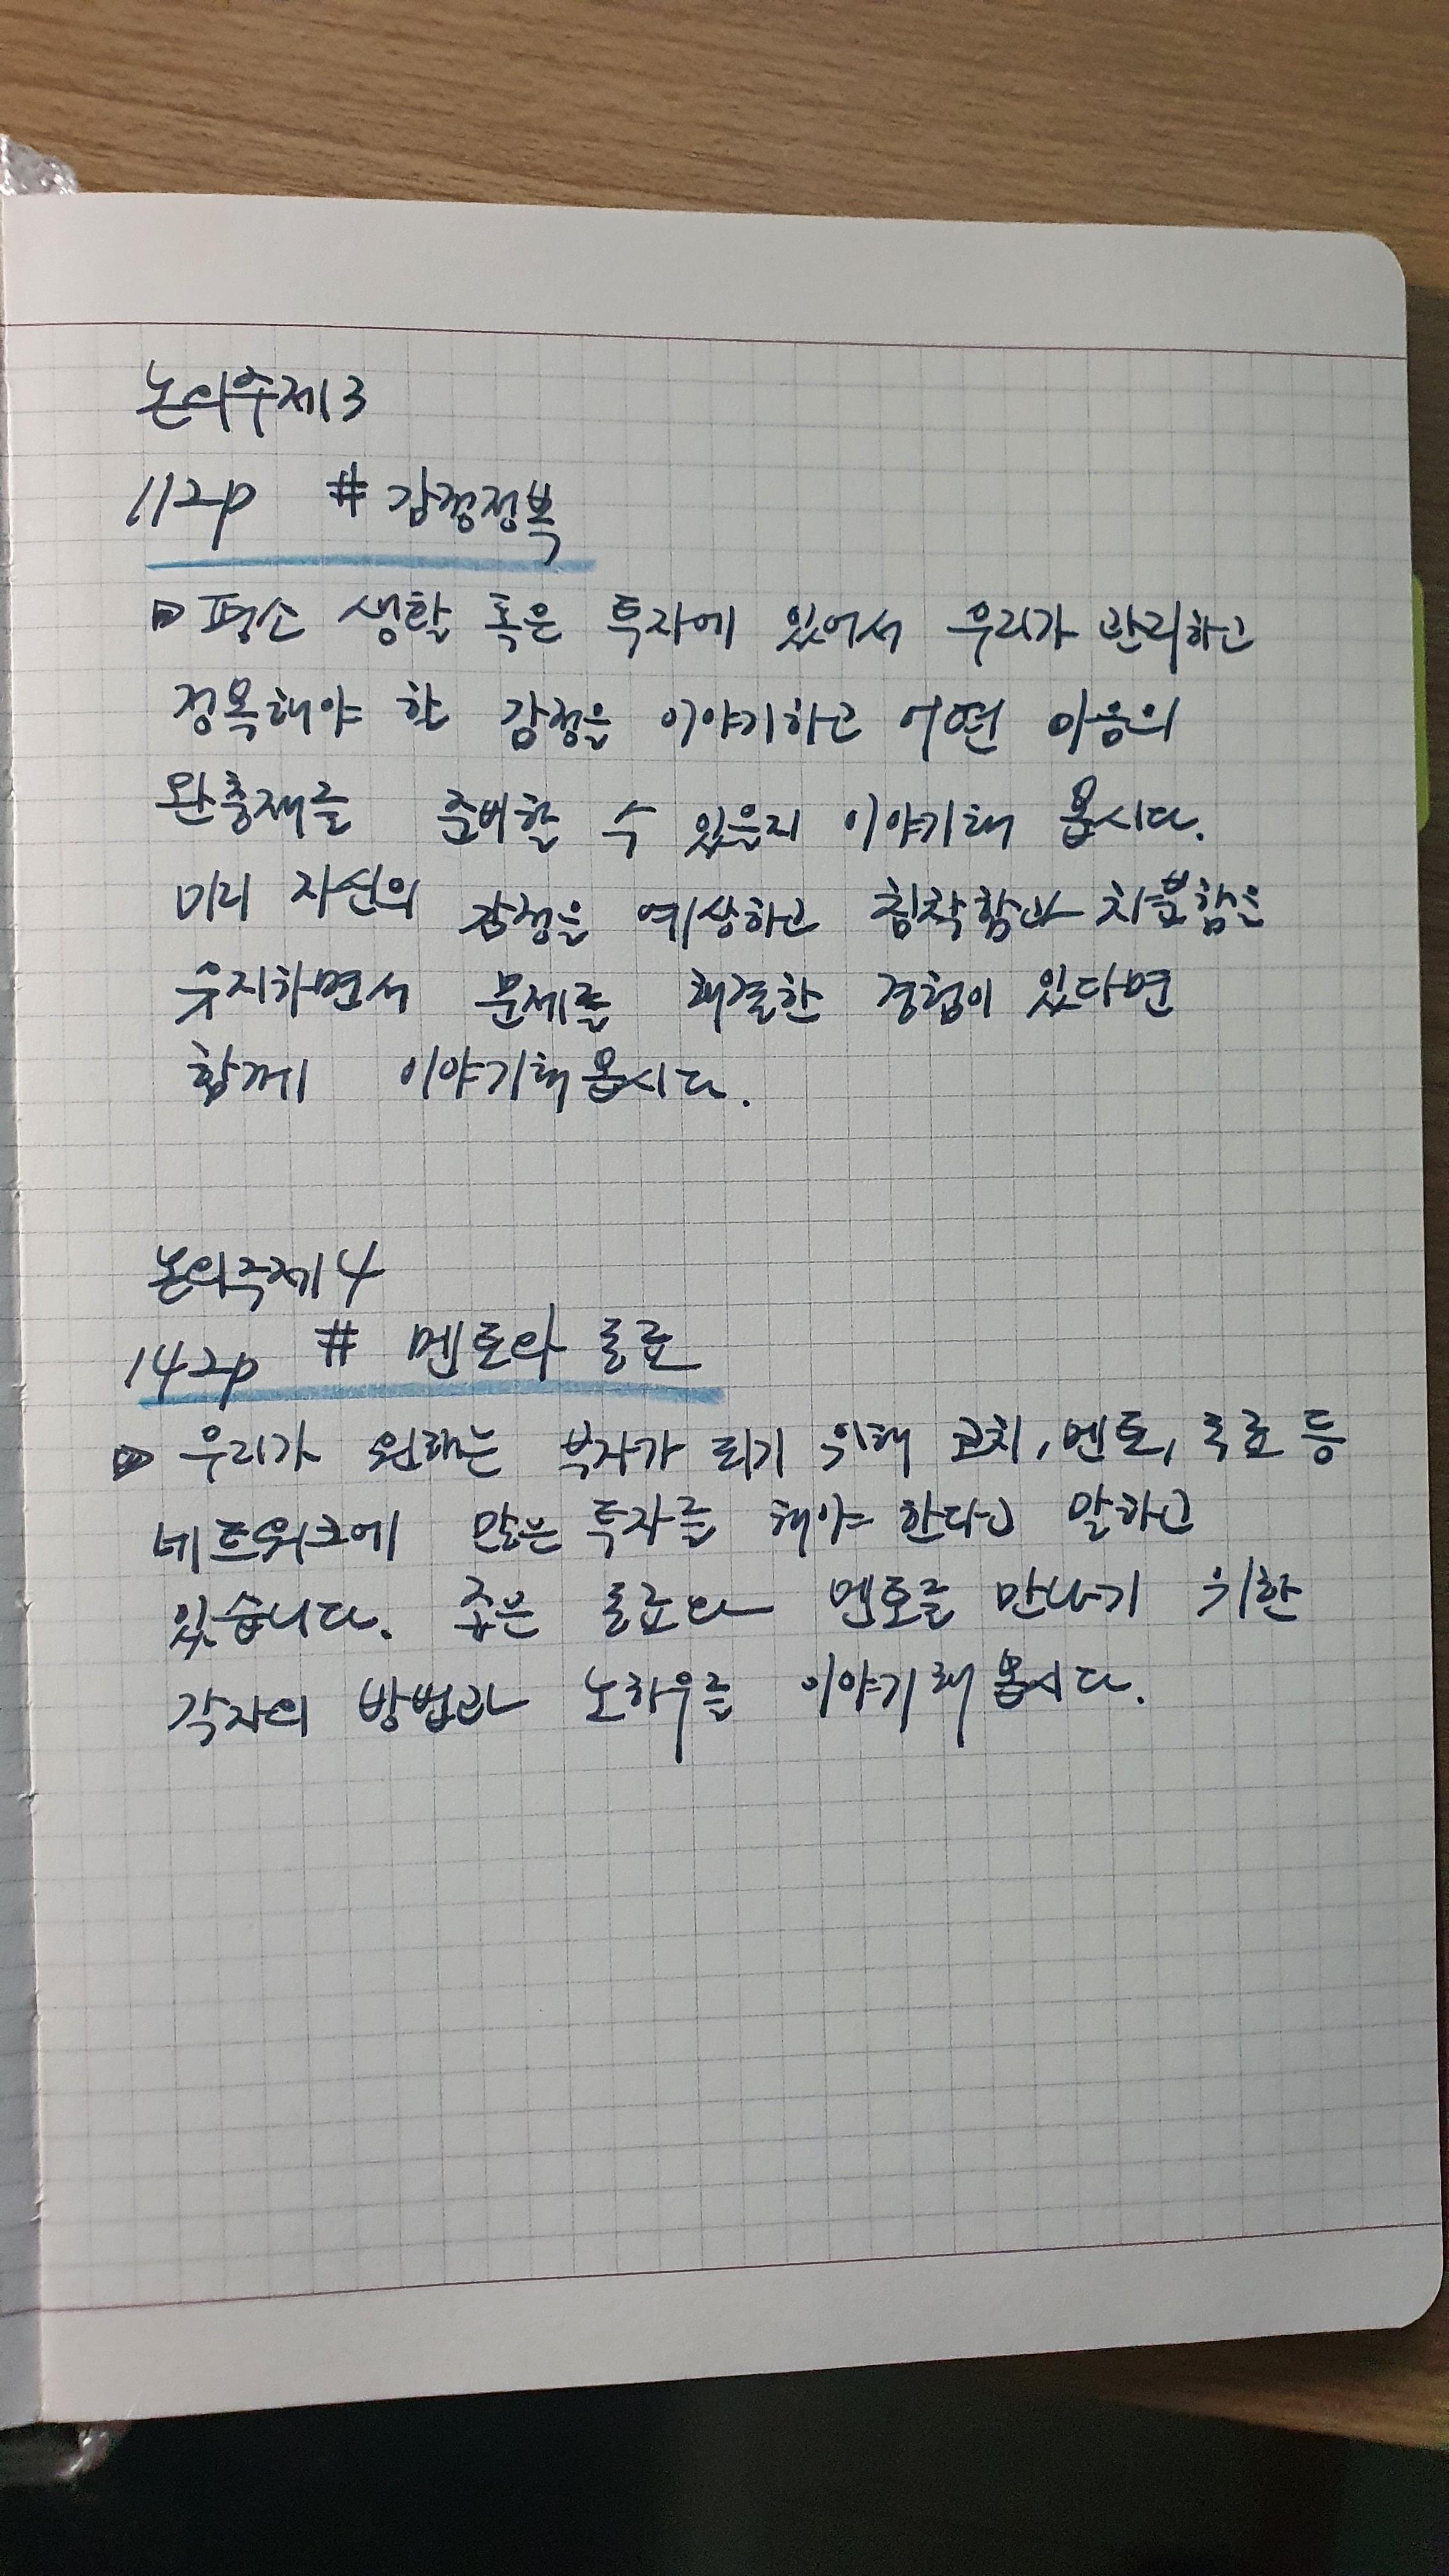 논의주제3
112p # 감정정복
▷ 평소 생활 혹은 투자에 있어서 우리가 관리하고
정복해야 할 감정을 이야기하고 어떤 마음의
완충재를 준비할 수 있을지 이야기해 봅시다.
미리 자신의 감정을 예상하고 침착함과 차분함을
유지하면서 문제를 해결한 경험이 있다면
함께 이야기해 봅시다.
논의주제4
142p # 멘토와 동료
▷ 우리가 원하는 부자가 되기 위해 코치, 멘토, 동료 등
네트워크에 많은 투자를 해야 한다고 말하고
있습니다. 좋은 동료와 멘토를 만나기 위한
각자의 방법과 노하우를 이야기해 봅시다.